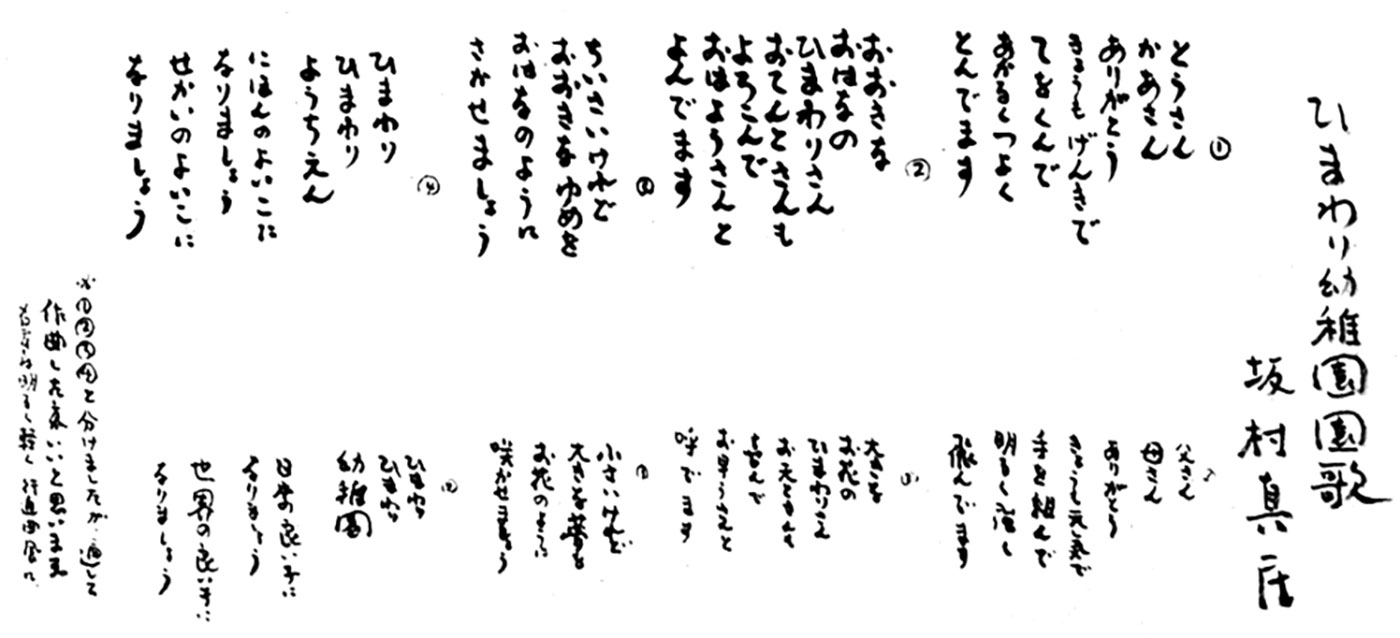 ひまわり幼稚園園歌
坂村真民
①
とうさん
かあさん
ありがとう
きょうもげんきで
てをくんで
あかるくつよく
とんでます
②
おおきな
おはなの
ひまわりさん
おてんとさんも
よろこんで
おはようさんと
よんでます
③
ちいさいけれど
おおきなゆめを
おはなのように
さかせましょう
④
ひまわり
ひまわり
ようちえん
にほんのよいこに
なりましょう
せかいのよいこに
なりましょう
父さん
母さん
ありがとう
きょうも元気で
手を組んで
明るく強く
飛んでます
大きな
お花の
ひまわりさん
お天とさんも
喜んで
お早うさんと
呼んでます
小さいけれど
大きな夢を
お花のように
咲かせましょう
ひまわり
ひまわり
幼稚園
日本の良い子に
なりましょう
世界の良い子に
なりましょう
※①②③④と分けましたが、通して
作曲した方がいいと思います
明るく軽く行進曲風に